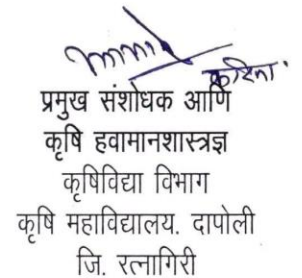 करिता.
प्रमुख संशोधक आणि
कृषि हवामानशास्त्रज्ञ
कृषिविद्या विभाग
कृषि महाविद्यालय. दापोली
जि. रत्नागिरी